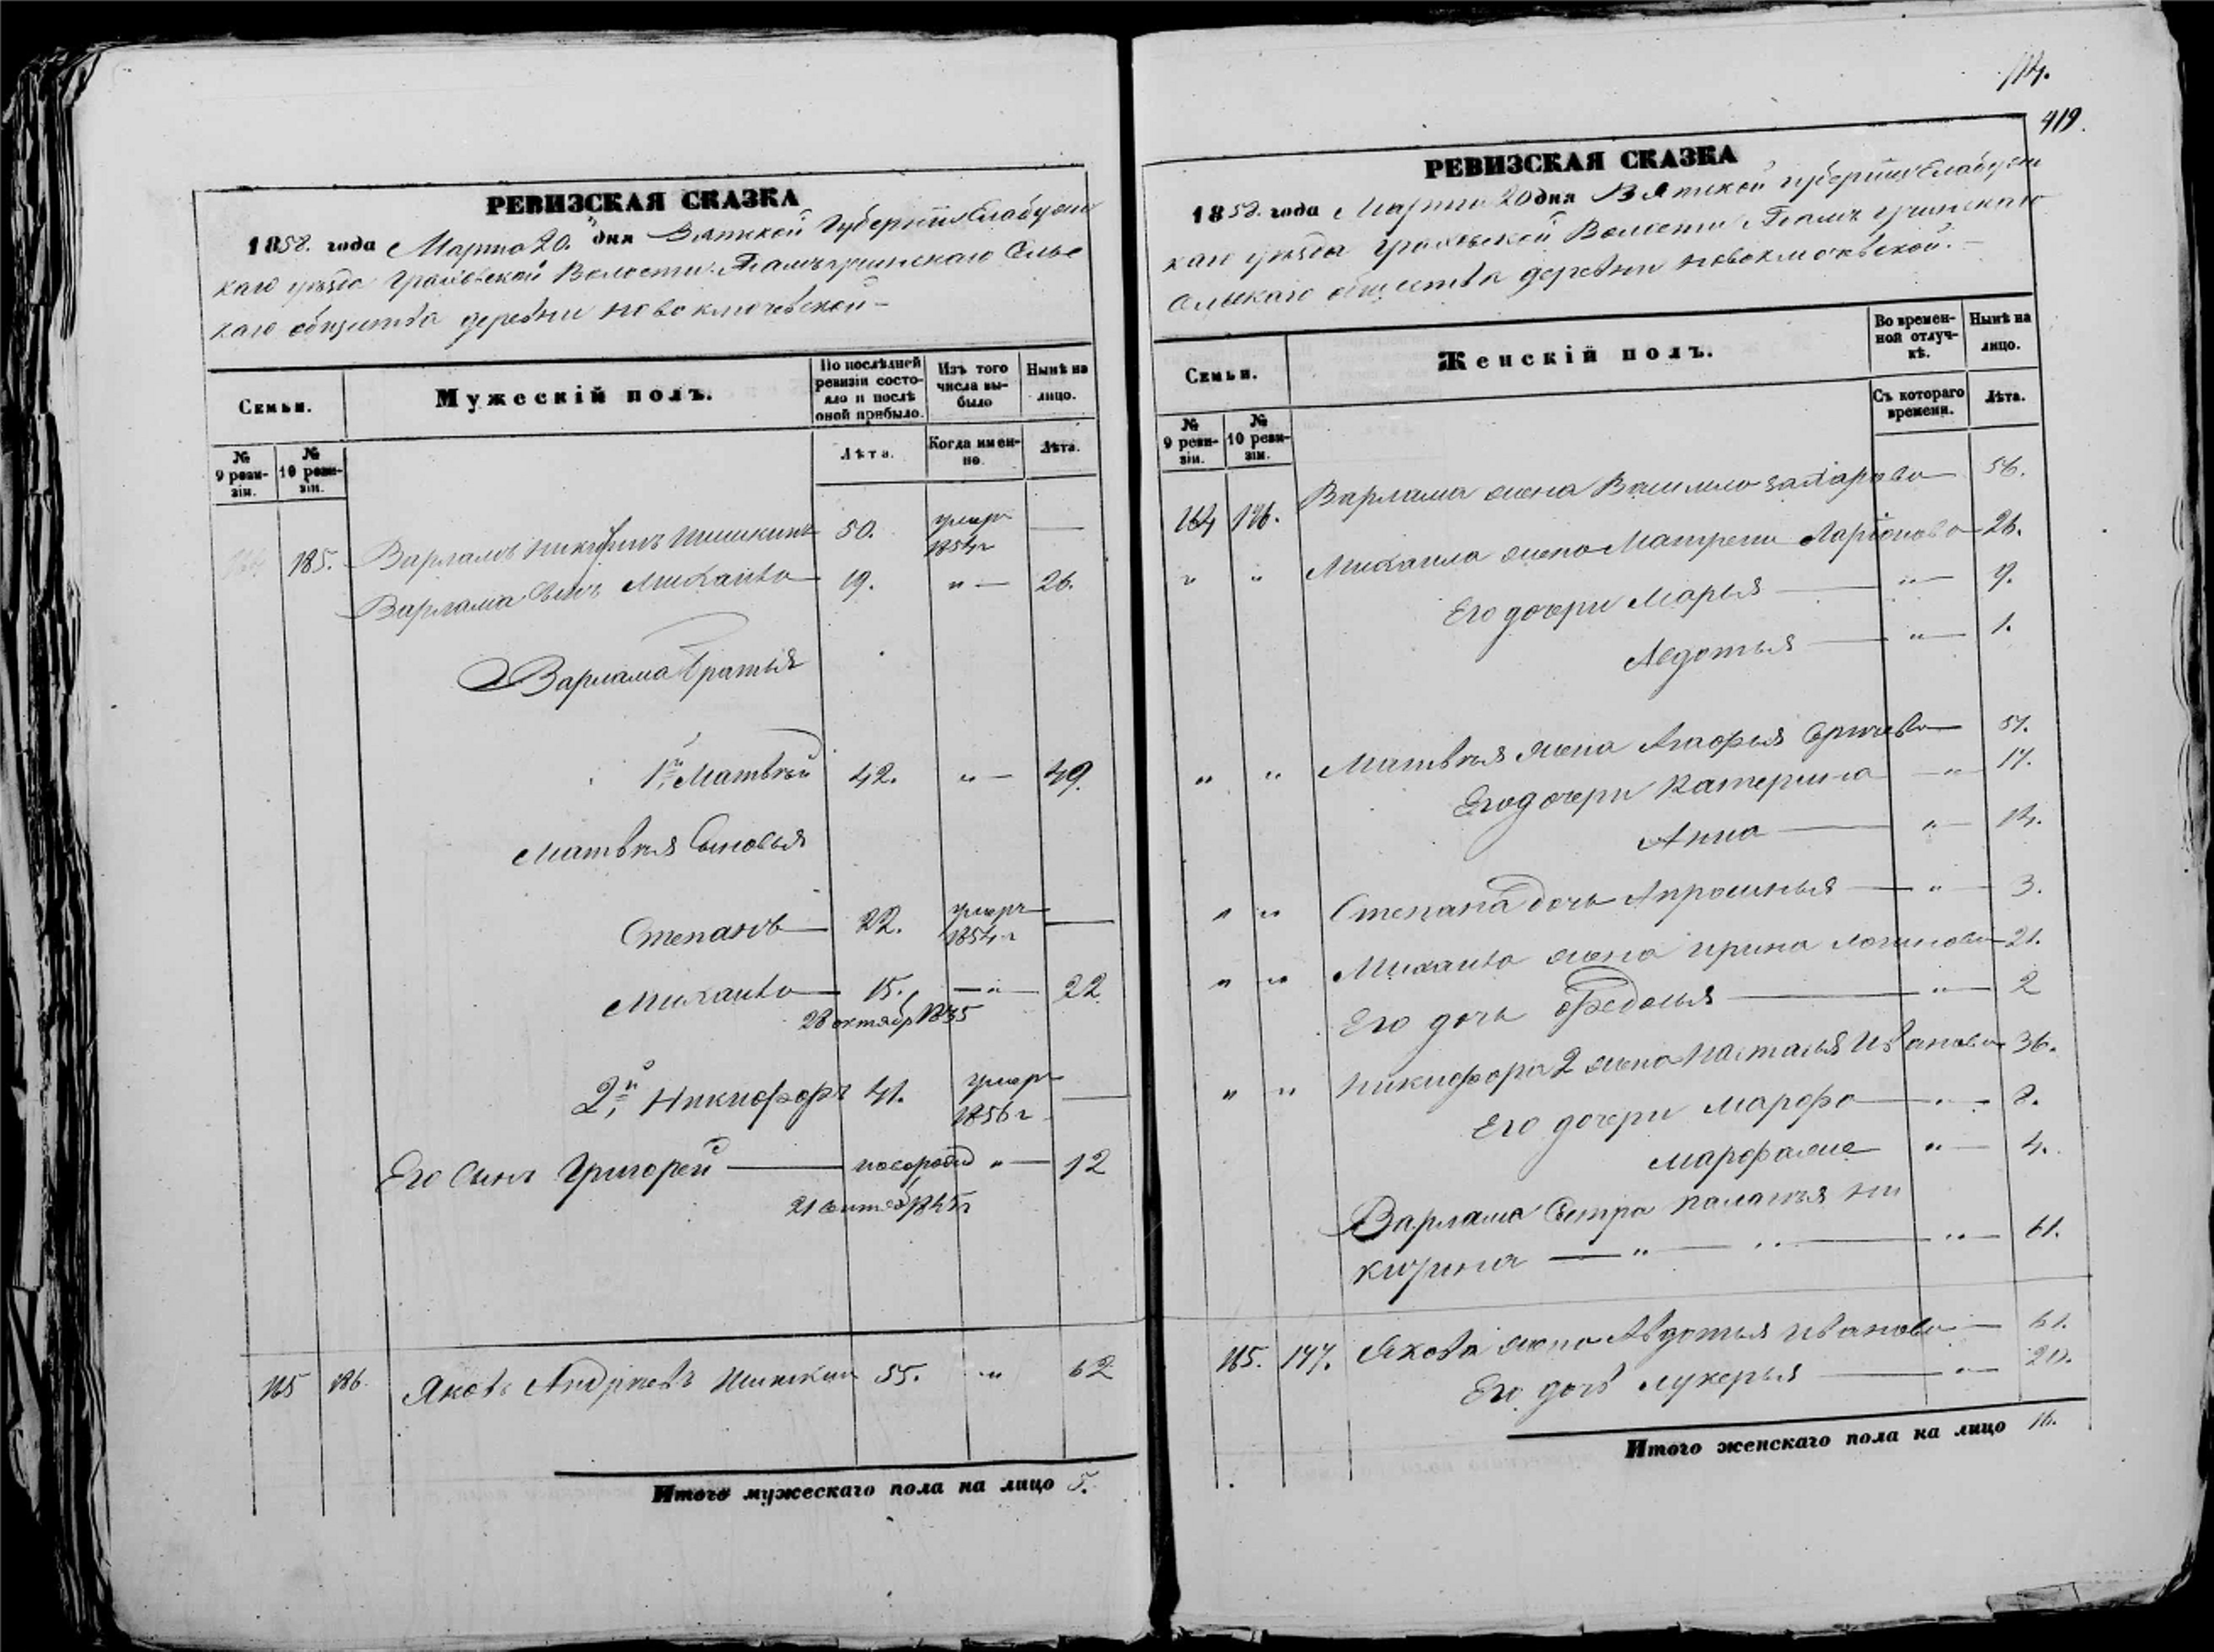 РЕВИЗСКАЯ СКАЗКА
1858. года Марта 20. дня Вятской Губернии Елабужс
каго уѣзда Граховской Волости Сельс
каго общества деревни Новоключевской
Семьи.
Мужескій полъ.
По послѣдней ревизіи состояло и послѣ оной прибыло.
Изъ того числа выбыло
Нынѣ на лицо.
№ 9 ревизіи.
№ 10 ревизіи.
Лѣта.
Когда именно.
Лѣта.
185. Варламъ Шишкинъ 50. умеръ 1854 г —
Варлама сынъ Михайло 19. " — 26.
Варлама Братья
1й Матвѣй 42. " — 49.
Матвѣя Сыновья
Степанъ — 22. умеръ 1854 г —
Михайло — 15. — " — 22
28 октябр
2й, Никифоръ 41. умеръ 1856 г —
Его Сынъ Григорей — " — 12
21
165 186. Яковъ Андреевъ Шишкин 55. " 62
Итого мужескаго пола на лицо 5.
114.
419.
РЕВИЗСКАЯ СКАЗКА
1858. года Марта 20 дня Вятской губернии Елабужс
каго уѣзда Граховской Волости
Сельскаго общества деревни Новоключевской. —
Семьи.
Женскій полъ.
Во временной отлучкѣ.
Нынѣ на лицо.
№ 9 ревизіи.
№ 10 ревизіи.
Съ котораго времени.
Лѣта.
164 Варлама жена Захарова — 56.
" " Михаила жена Матрена Ларіонова — 26.
Его дочери Марья — " — 9.
Авдотья — " — 1.
" " Матвѣя жена Агафья — 51.
Его дочери Катерина — " — 17.
Анна — " — 14.
" " Степана дочь Апросинья — " — 3.
" " Михаила жена Ирина Логинова — 21.
Его дочь Федосья — " — 2
" " Никифора 2 жена Наталья Иванова 36.
Его дочери Марфа — " — 8.
Марфа же " — 4.
Варлама Сестра Палагея Ни
— " — " — " — 61.
165. Якова жена Авдотья Иванова — 61.
Его дочь Лукерья — " — 20.
Итого женскаго пола на лицо